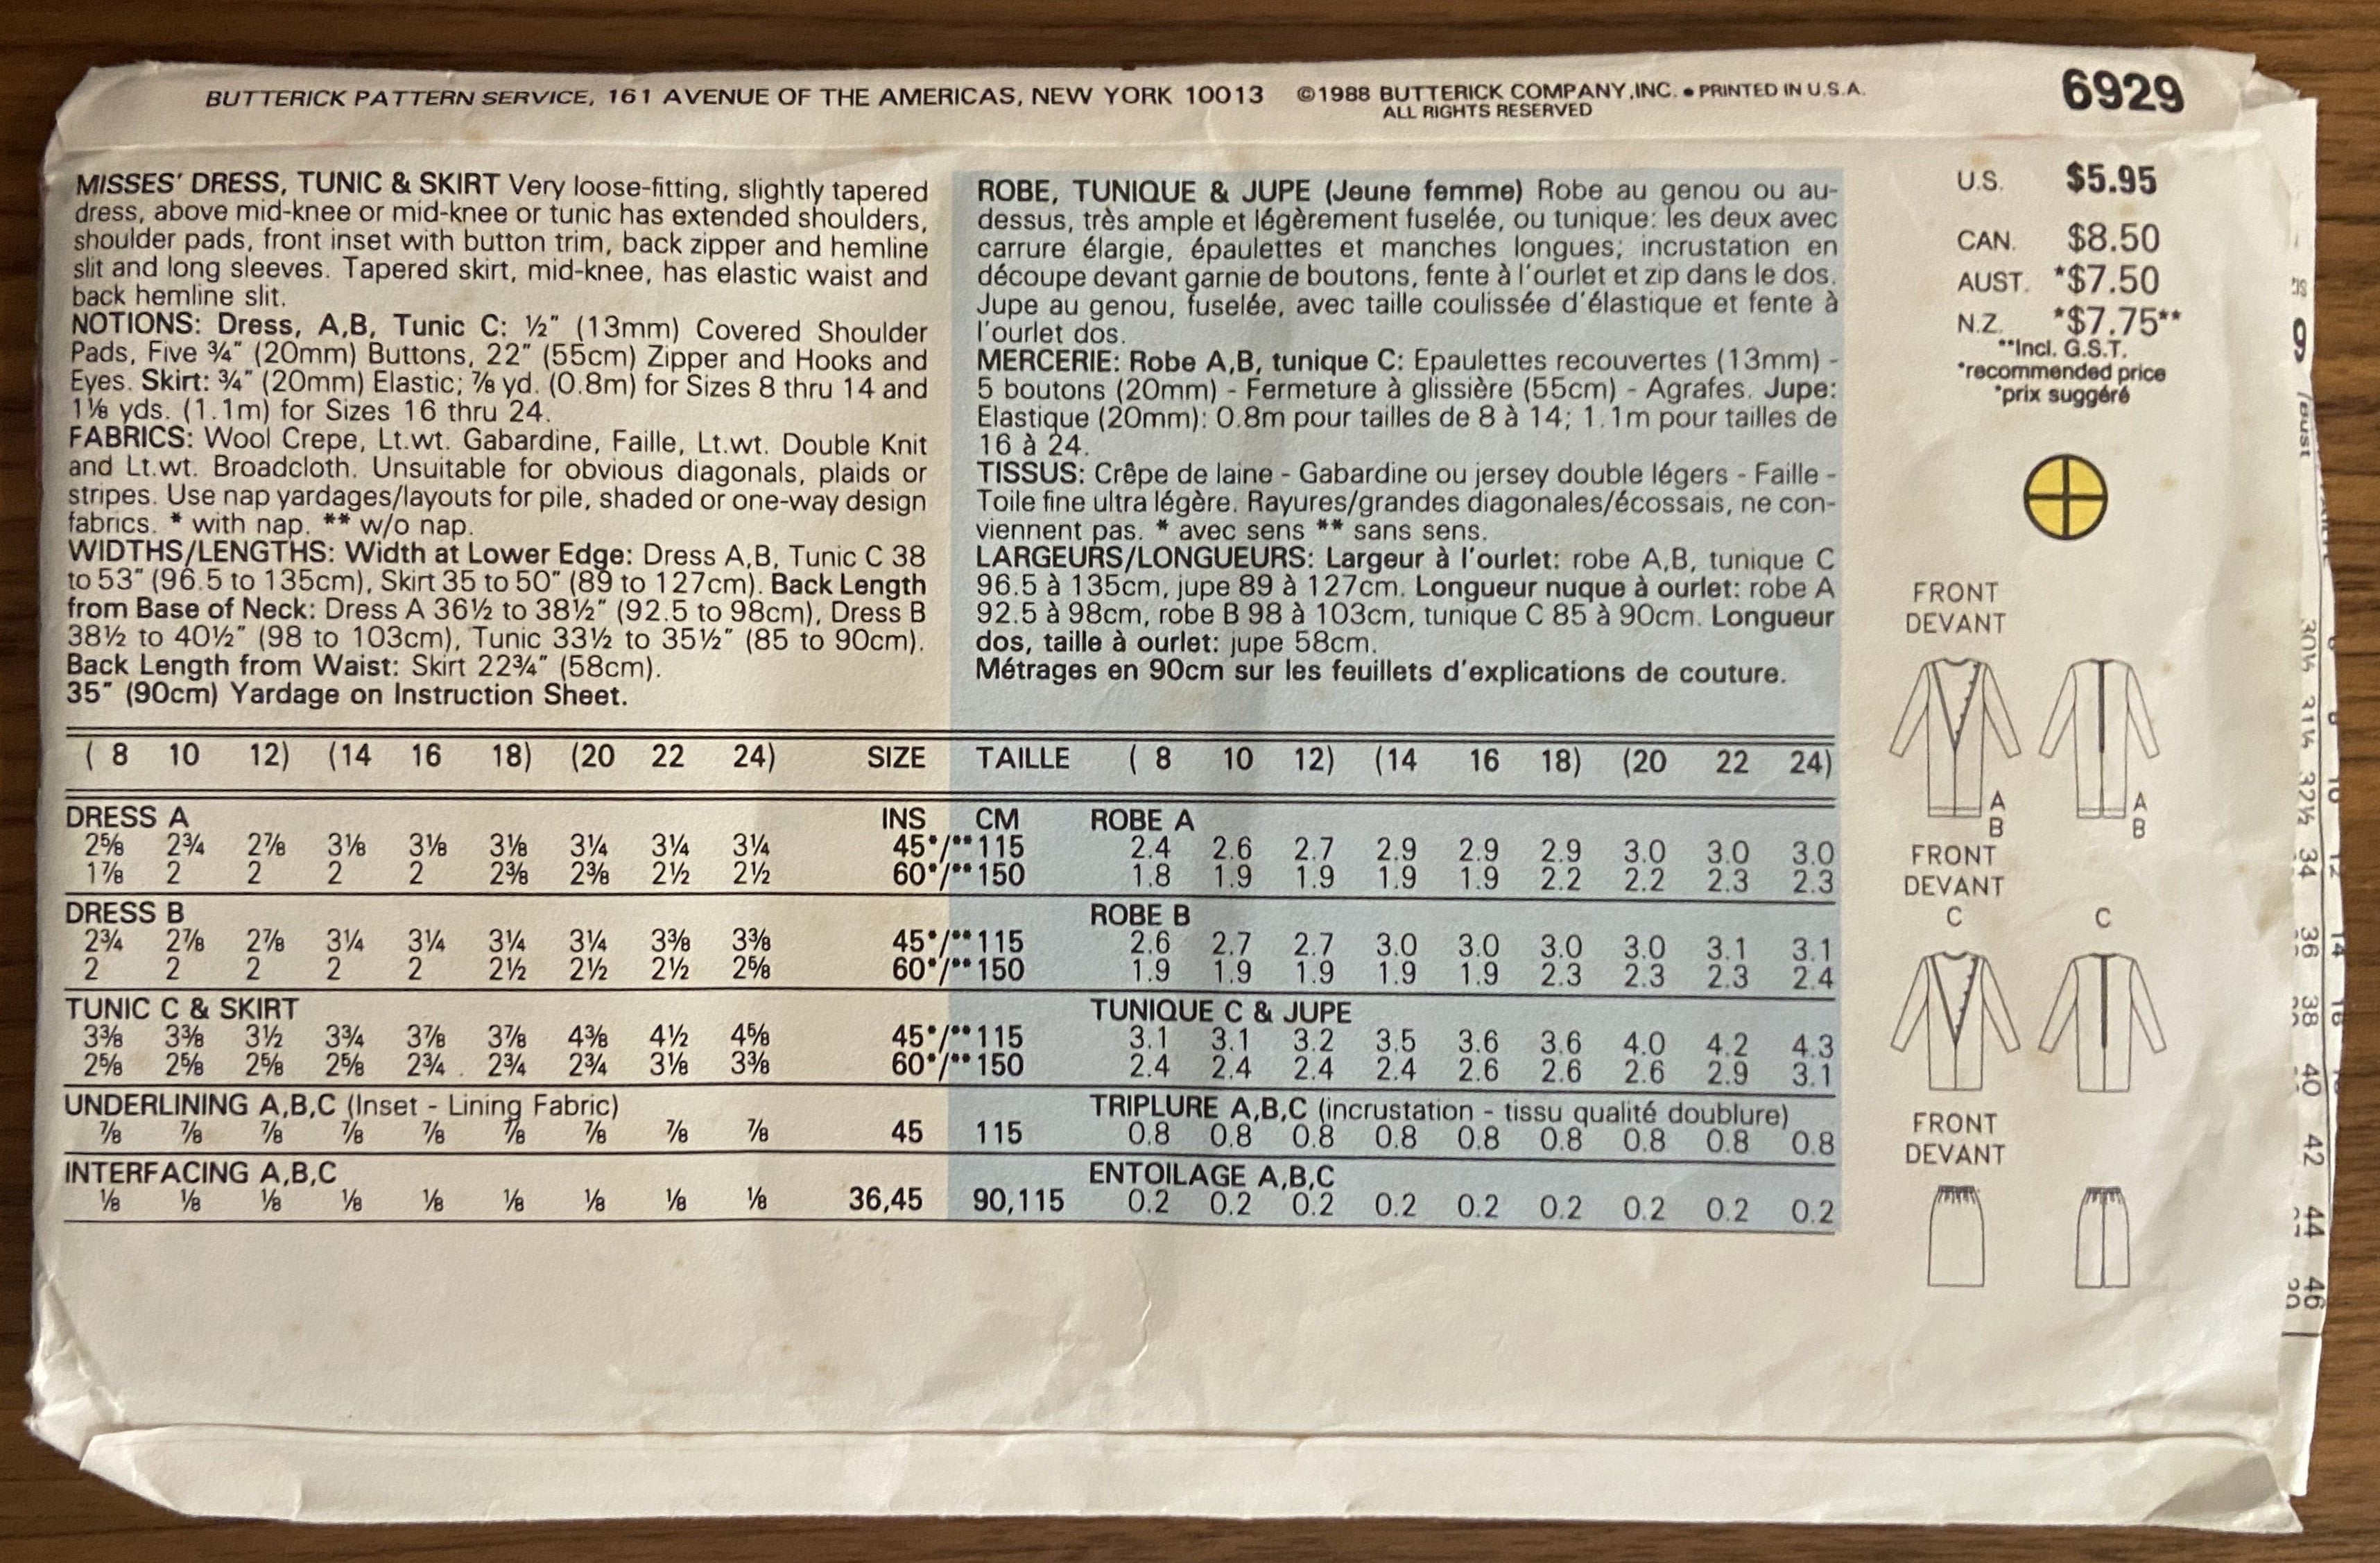 BUTTERICK PATTERN SERVICE, 161 AVENUE OF THE AMERICAS, NEW YORK 10013 ©1988 BUTTERICK COMPANY, INC. • PRINTED IN U.S.A.
ALL RIGHTS RESERVED
6929
MISSES' DRESS, TUNIC & SKIRT Very loose-fitting, slightly tapered
dress, above mid-knee or mid-knee or tunic has extended shoulders,
shoulder pads, front inset with button trim, back zipper and hemline
slit and long sleeves. Tapered skirt, mid-knee, has elastic waist and
back hemline slit.
NOTIONS: Dress, A,B, Tunic C: ½" (13mm) Covered Shoulder
Pads, Five ¾" (20mm) Buttons, 22" (55cm) Zipper and Hooks and
Eyes. Skirt: ¾" (20mm) Elastic; ⅞ yd. (0.8m) for Sizes 8 thru 14 and
1⅛ yds. (1.1m) for Sizes 16 thru 24.
FABRICS: Wool Crepe, Lt.wt. Gabardine, Faille, Lt.wt. Double Knit
and Lt.wt. Broadcloth. Unsuitable for obvious diagonals, plaids or
stripes. Use nap yardages/layouts for pile, shaded or one-way design
fabrics. * with nap. ** w/o nap.
WIDTHS/LENGTHS: Width at Lower Edge: Dress A,B, Tunic C 38
to 53" (96.5 to 135cm), Skirt 35 to 50" (89 to 127cm). Back Length
from Base of Neck: Dress A 36½ to 38½" (92.5 to 98cm), Dress B
38½ to 40½" (98 to 103cm), Tunic 33½ to 35½" (85 to 90cm).
Back Length from Waist: Skirt 22¾" (58cm).
35" (90cm) Yardage on Instruction Sheet.
ROBE, TUNIQUE & JUPE (Jeune femme) Robe au genou ou au-
dessus, très ample et légèrement fuselée, ou tunique: les deux avec
carrure élargie, épaulettes et manches longues; incrustation en
découpe devant garnie de boutons, fente à l'ourlet et zip dans le dos.
Jupe au genou, fuselée, avec taille coulissée d'élastique et fente à
l'ourlet dos.
MERCERIE: Robe A,B, tunique C: Epaulettes recouvertes (13mm) -
5 boutons (20mm) - Fermeture à glissière (55cm) - Agrafes. Jupe:
Elastique (20mm): 0.8m pour tailles de 8 à 14; 1.1m pour tailles de
16 à 24.
TISSUS: Crêpe de laine - Gabardine ou jersey double légers - Faille -
Toile fine ultra légère. Rayures/grandes diagonales/écossais, ne con-
viennent pas. * avec sens ** sans sens.
LARGEURS/LONGUEURS: Largeur à l'ourlet: robe A,B, tunique C
96.5 à 135cm, jupe 89 à 127cm. Longueur nuque à ourlet: robe A
92.5 à 98cm, robe B 98 à 103cm, tunique C 85 à 90cm. Longueur
dos, taille à ourlet: jupe 58cm.
Métrages en 90cm sur les feuillets d'explications de couture.
U.S. $5.95
CAN. $8.50
AUST. *$7.50
N.Z. *$7.75**
**Incl. G.S.T.
*recommended price
*prix suggéré
( 8 10 12) (14 16 18) (20 22 24) SIZE TAILLE ( 8 10 12) (14 16 18) (20 22 24)
DRESS A INS CM ROBE A
2⅝ 2¾ 2⅞ 3⅛ 3⅛ 3⅛ 3¼ 3¼ 3¼ 45*/**115 2.4 2.6 2.7 2.9 2.9 2.9 3.0 3.0 3.0
1⅞ 2 2 2 2 2⅜ 2⅜ 2½ 2½ 60*/**150 1.8 1.9 1.9 1.9 1.9 2.2 2.2 2.3 2.3
DRESS B ROBE B
2¾ 2⅞ 2⅞ 3¼ 3¼ 3¼ 3¼ 3⅜ 3⅜ 45*/**115 2.6 2.7 2.7 3.0 3.0 3.0 3.0 3.1 3.1
2 2 2 2 2 2½ 2½ 2½ 2⅝ 60*/**150 1.9 1.9 1.9 1.9 1.9 2.3 2.3 2.3 2.4
TUNIC C & SKIRT TUNIQUE C & JUPE
3⅜ 3⅜ 3½ 3¾ 3⅞ 3⅞ 4⅜ 4½ 4⅝ 45*/**115 3.1 3.1 3.2 3.5 3.6 3.6 4.0 4.2 4.3
2⅝ 2⅝ 2⅝ 2⅝ 2¾ 2¾ 2¾ 3⅛ 3⅜ 60*/**150 2.4 2.4 2.4 2.4 2.6 2.6 2.6 2.9 3.1
UNDERLINING A,B,C (Inset - Lining Fabric) TRIPLURE A,B,C (incrustation - tissu qualité doublure)
⅞ ⅞ ⅞ ⅞ ⅞ ⅞ ⅞ ⅞ ⅞ 45 115 0.8 0.8 0.8 0.8 0.8 0.8 0.8 0.8 0.8
INTERFACING A,B,C ENTOILAGE A,B,C
⅛ ⅛ ⅛ ⅛ ⅛ ⅛ ⅛ ⅛ ⅛ 36,45 90,115 0.2 0.2 0.2 0.2 0.2 0.2 0.2 0.2 0.2
FRONT
DEVANT
A A
B B
FRONT
DEVANT
C C
FRONT
DEVANT
30½ 31½ 32½ 34 36 38 40 42 44 46